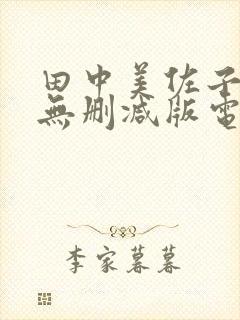 田中美佐子
無删减版電
李家暮暮